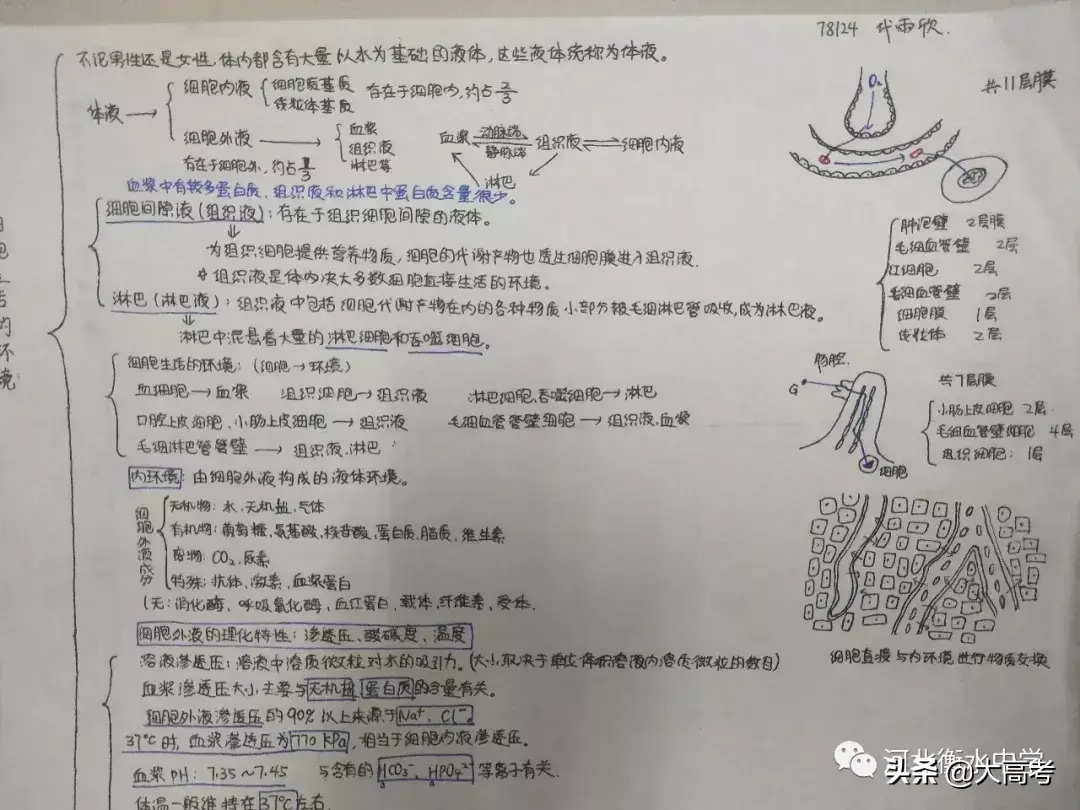 78124 代雨欣.
不论男性还是女性,体内都含有大量以水为基础的液体,这些液体统称为体液。
体液→
细胞内液
细胞质基质
线粒体基质
存在于细胞内,约占2/3
细胞外液
血浆
组织液
淋巴等
存在于细胞外,约占1/3
血浆 动脉端 静脉端 组织液 细胞内液
淋巴
血浆中有较多蛋白质,组织液和淋巴中蛋白质含量很少。
细胞间隙液(组织液):存在于组织细胞间隙的液体。
为组织细胞提供营养物质,细胞的代谢产物也透过细胞膜进入组织液.
组织液是体内决大多数细胞直接生活的环境。
淋巴(淋巴液):组织液中包括细胞代谢产物在内的各种物质小部分被毛细淋巴管吸收,成为淋巴液。
淋巴中混悬着大量的淋巴细胞和吞噬细胞。
细胞生活的环境:(细胞→环境)
血细胞→血浆 组织细胞→组织液 淋巴细胞、吞噬细胞→淋巴
口腔上皮细胞、小肠上皮细胞→组织液 毛细血管管壁细胞→组织液、血浆
毛细淋巴管管壁→组织液、淋巴
内环境:由细胞外液构成的液体环境。
细胞外液成分
无机物:水、无机盐、气体
有机物:葡萄糖、氨基酸、核苷酸、蛋白质、脂质、维生素
废物:CO₂、尿素
特殊:抗体、激素、血浆蛋白
(无:消化酶、呼吸氧化酶、血红蛋白、载体、纤维素、受体.
细胞外液的理化特性:渗透压、酸碱度、温度
溶液渗透压:溶液中溶质微粒对水的吸引力。(大小取决于单位体积溶液内溶质微粒的数目)
血浆渗透压大小主要与无机盐,蛋白质的含量有关。
细胞外液渗透压的90%以上来源于Na⁺、Cl⁻。
37℃时,血浆渗透压为770kPa,相当于细胞内液渗透压。
血浆PH:7.35~7.45 与含有的HCO₃⁻、HPO₄²⁻等离子有关.
体温一般维持在37℃左右.
O₂
共11层膜
肺泡壁 2层膜
毛细血管壁 2层
红细胞 2层
毛细血管壁 2层
细胞膜 1层
线粒体 2层
肠腔
G
细胞
共7层膜
小肠上皮细胞 2层
毛细血管壁细胞 4层
组织细胞:1层
细胞直接与内环境进行物质交换
河北衡水中学
头条 @大高考